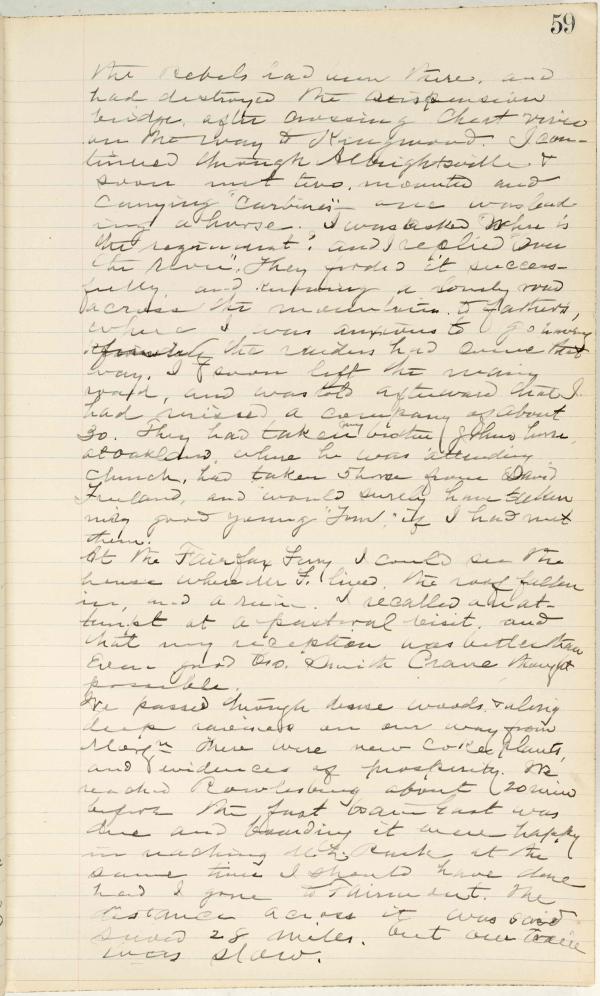 59
the Rebels had been there, and
had destroyed the suspension
bridge, after crossing Cheat river
on the way to Kingwood. I con-
tinued through Albrightsville &
soon met two, mounted and
carrying "Carbines" one was lead
ing a horse. I was asked "Where is
the regiment"? and I replied "Over
the River". They forded it success-
fully and knowing a lonely road
across the mountain to fathers,
where I was anxious to go
the raiders had come that
way. I soon left the main
road, and was told afterward that I
had missed a company of about
30. They had taken my brother horse,
at Oakland, where he was attending
church, had taken 5 horse from David
Freeland, and would surely have taken
my good young "Tom," if I had met
them.
At the Fairfax Ferry I could see the
house where Mr F. lived, the roof fallen
in, and a ruin. I recalled an at-
tempt at a pastoral visit, and
that my reception was better than
even good Bro. Smith Crane thought
possible.
We passed through dense woods, & along
deep ravines on our way from
Morgn there were new Coke plants,
and evidences of prosperity. We
reached Rowlesburg about 20 min
before the fast train East was
due and boarding it were happy
in reaching Mt. Park at the
same time I should have done
had I gone to Fairmont. The
distance across it was said
saved 28 miles. but our train
was slow.